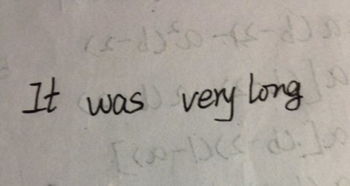 It was very long